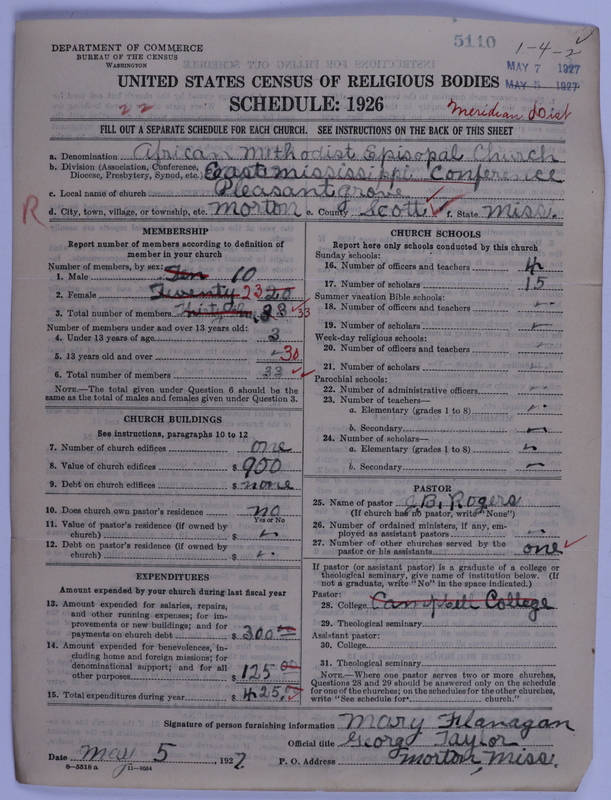 5110
1-4-2
DEPARTMENT OF COMMERCE
BUREAU OF THE CENSUS
WASHINGTON
MAY 7 1927
MAY 5 1927
UNITED STATES CENSUS OF RELIGIOUS BODIES
22
SCHEDULE: 1926
Meridian Dist
FILL OUT A SEPARATE SCHEDULE FOR EACH CHURCH. SEE INSTRUCTIONS ON THE BACK OF THIS SHEET
a. Denomination African Methodist Episopal Church
b. Division (Association, Conference, Diocese, Presbytery, Synod, etc.) East mississippi Conference
c. Local name of church Pleasant grove
R
d. City, town, village, or township, etc. Morton e. County Scott f. State Miss.
MEMBERSHIP
Report number of members according to definition of
member in your church
Number of members, by sex:
1. Male Ten 10
2. Female Twenty 23 20
3. Total number of members 33 33
Number of members under and over 13 years old:
4. Under 13 years of age 3
5. 13 years old and over 30
6. Total number of members 33
NOTE.—The total given under Question 6 should be
same as the total of males and females given under Question 3.
CHURCH BUILDINGS
See instructions, paragraphs 10 to 12
7. Number of church edifices one
8. Value of church edifices $ 900
9. Debt on church edifices $ none
10. Does church own pastor's residence no
Yes or No
11. Value of pastor's residence (if owned by
church) $
12. Debt on pastor's residence (if owned by
church) $
EXPENDITURES
Amount expended by your church during last fiscal year
13. Amount expended for salaries, repairs,
and other running expenses; for im-
provements or new buildings; and for
payments on church debt $ 300.00
14. Amount expended for benevolences, in-
cluding home and foreign missions; for
denominational support; and for all
other purposes $ 125.00
15. Total expenditures during year $ 425.
CHURCH SCHOOLS
Report here only schools conducted by this church
Sunday schools:
16. Number of officers and teachers 4
17. Number of scholars 15
Summer vacation Bible schools:
18. Number of officers and teachers
19. Number of scholars
Week-day religious schools:
20. Number of officers and teachers
21. Number of scholars
Parochial schools:
22. Number of administrative officers
23. Number of teachers—
a. Elementary (grades 1 to 8)
b. Secondary
24. Number of scholars—
a. Elementary (grades 1 to 8)
b. Secondary
PASTOR
25. Name of pastor J.B. Rogers
(If church has no pastor, write "None")
26. Number of ordained ministers, if any, em-
ployed as assistant pastors
27. Number of other churches served by the
pastor or his assistants one
If pastor (or assistant pastor) is a graduate of a college or
theological seminary, give name of institution below. (If
not a graduate, write "No" in the space indicated.)
Pastor:
28. College Campbell College
29. Theological seminary
Assistant pastor:
30. College
31. Theological seminary
NOTE.—Where one pastor serves two or more churches,
Questions 28 and 29 should be answered only on the schedule
for one of the churches; on the schedules for the other churches,
write "See schedule for church."
Signature of person furnishing information Mary Flanagan
Official title George Taylor
Date May 5, 1927. P. O. Address Morton, Miss.
8—5518 a 11—9554